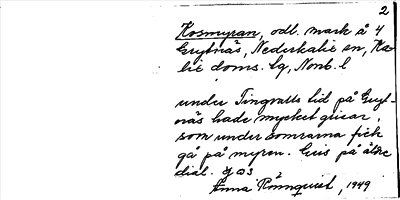 2
Kosmyran, odl. mark å 4
Grytnäs, Nederkalix sn, Ka-
lix doms. lg, Nonb. l
under Tingvalls tid på Gryt-
näs hade mycket grisar,
som under somrarna fick
gå på myren. Gris på äldre
dial.
Anna Rönnquist, 1949